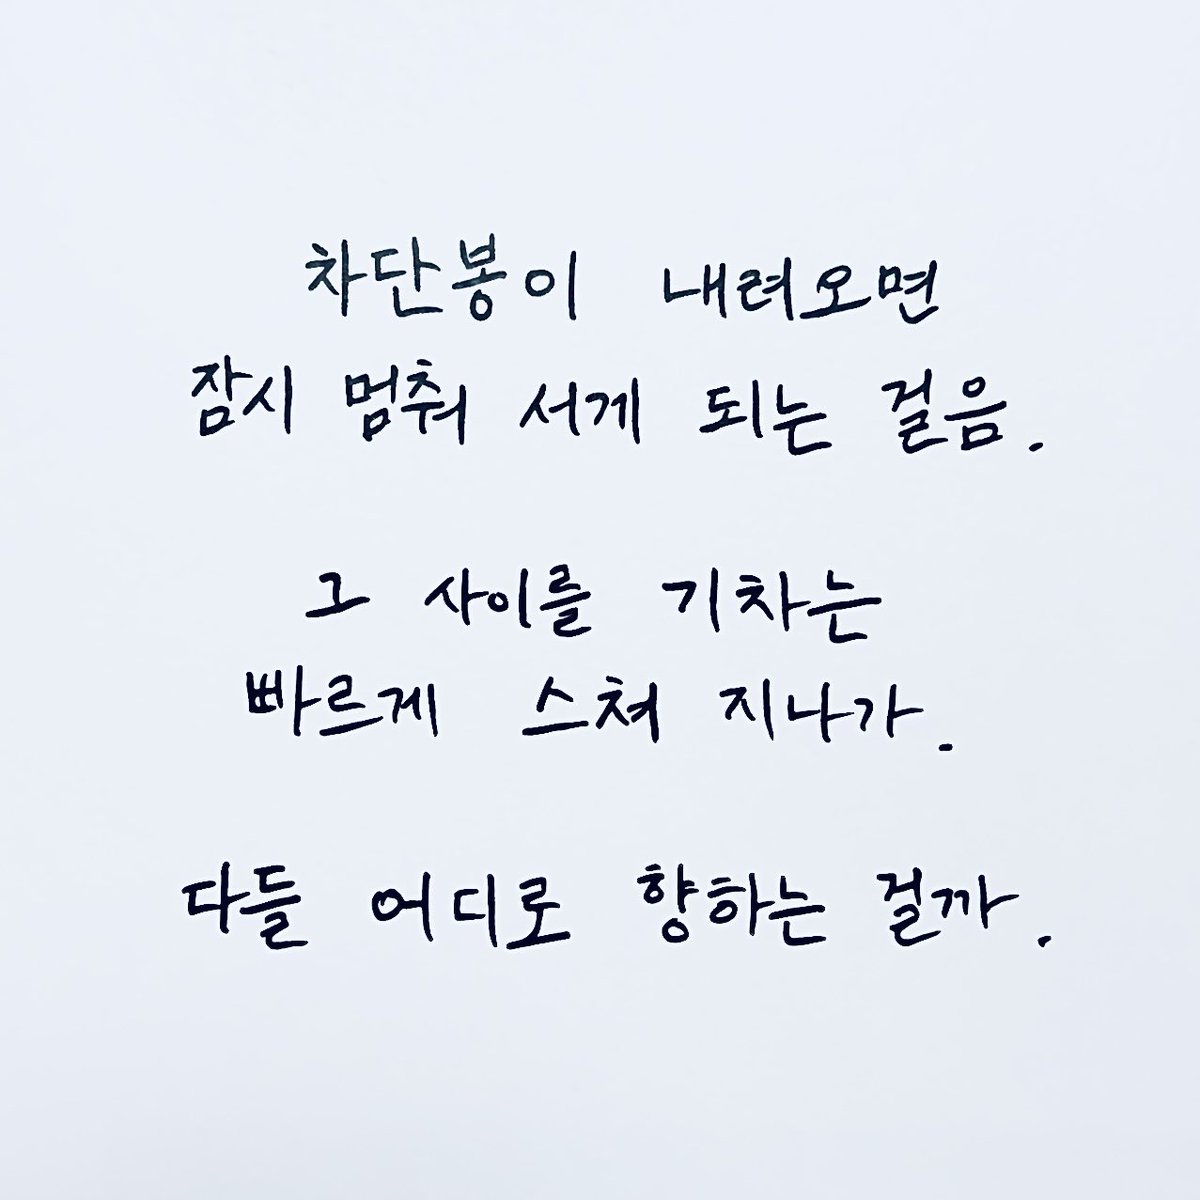 차단봉이 내려오면
잠시 멈춰 서게 되는 걸음.
그 사이를 기차는
빠르게 스쳐 지나가.
다들 어디로 향하는 걸까.